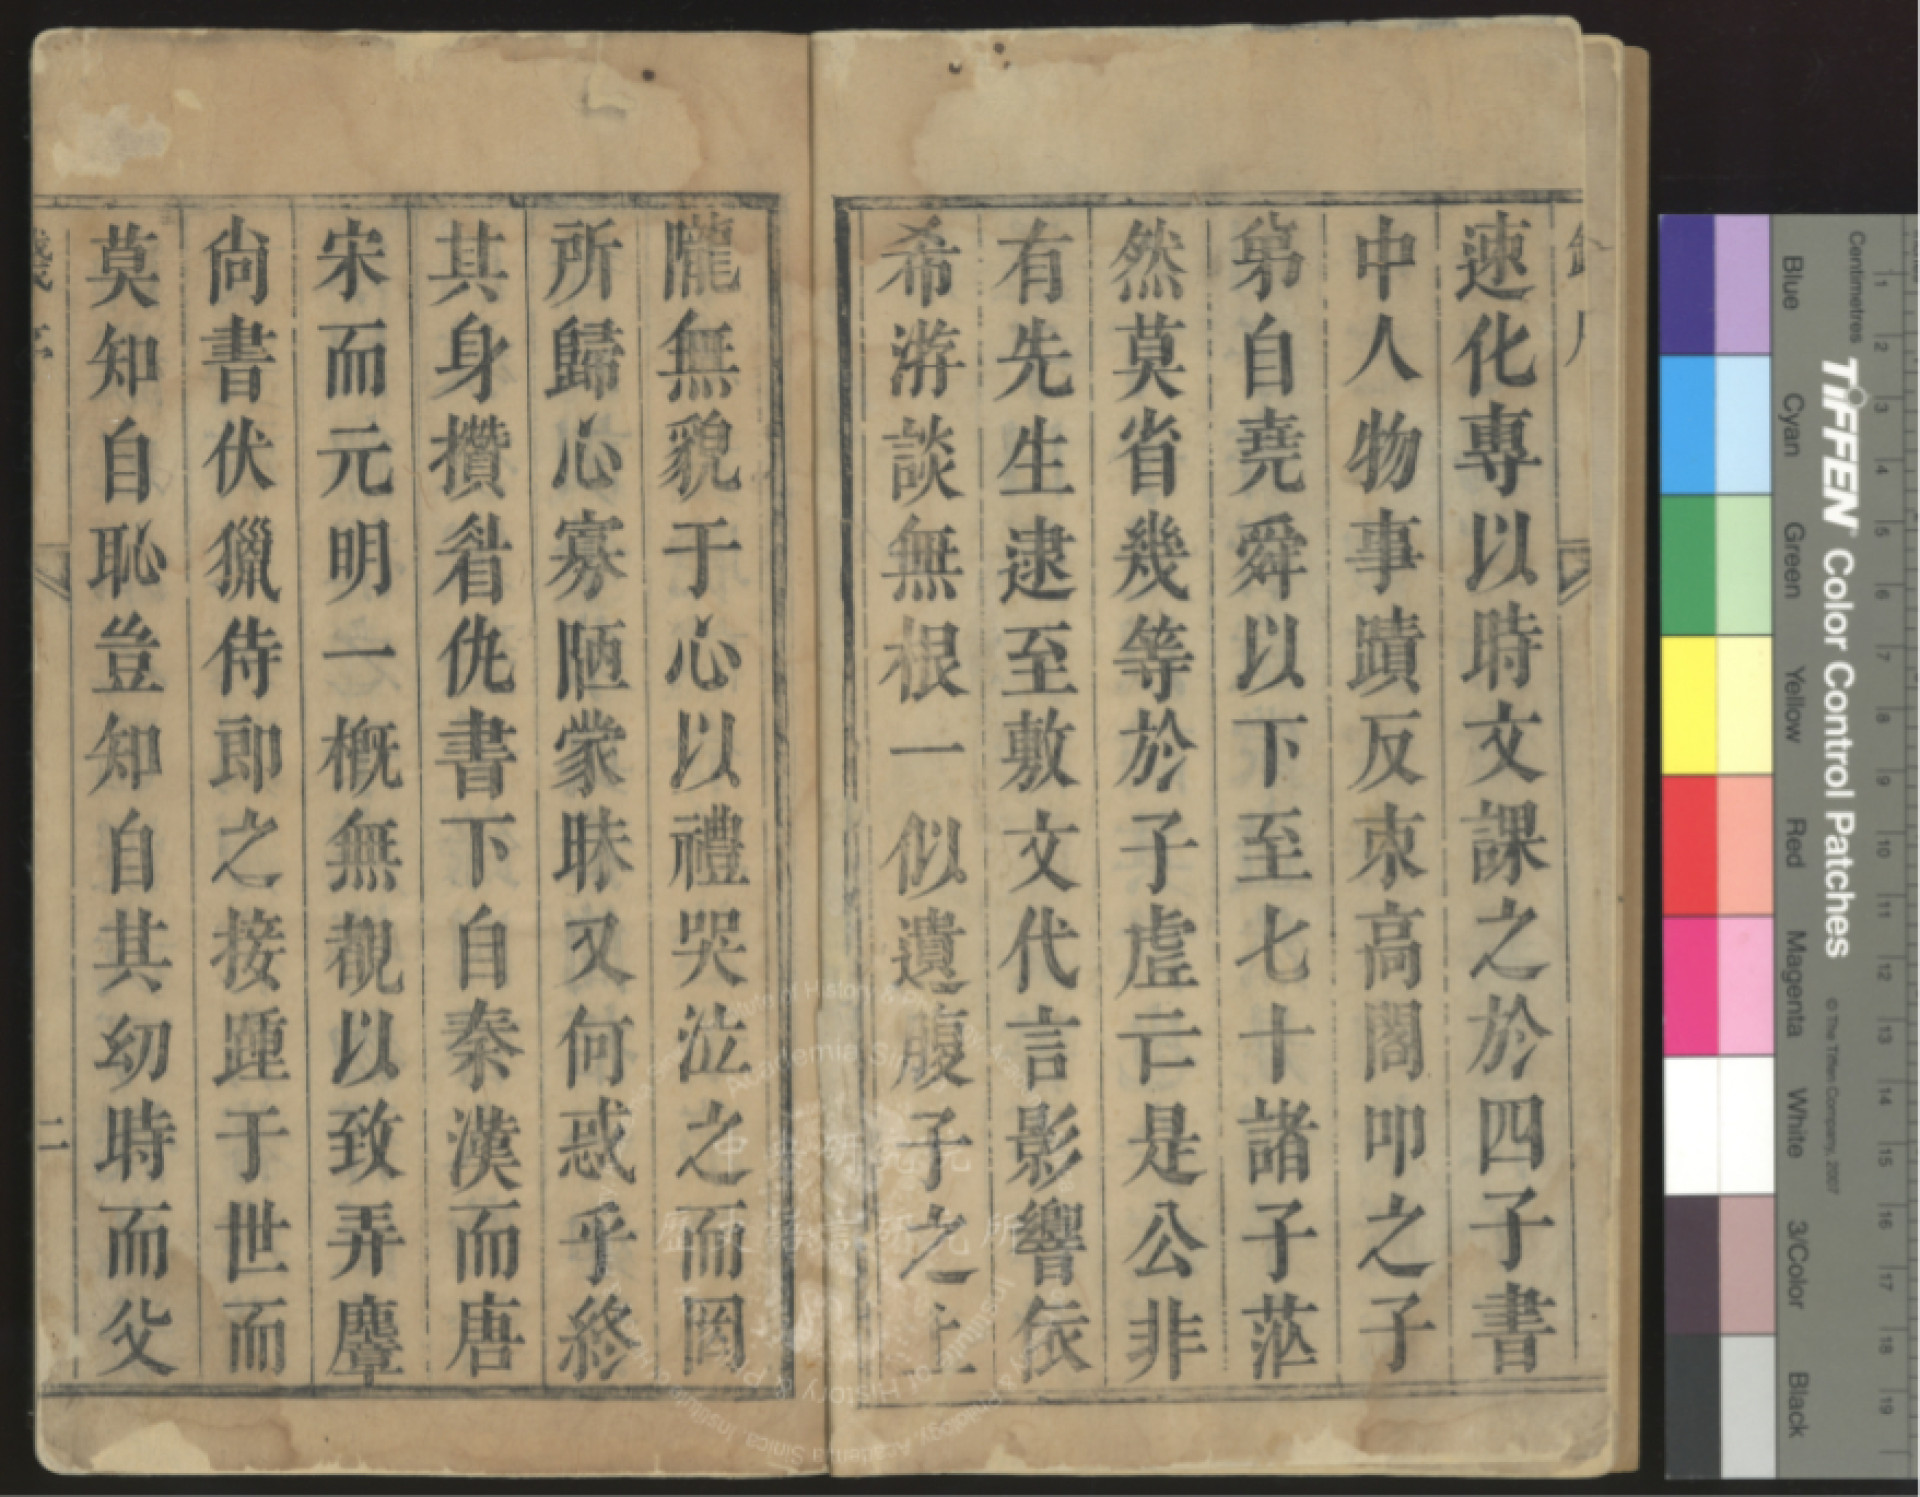 速化專以時文課之於四子書
中人物事蹟反束高閣叩之子
弟自堯舜以下至七十諸子茫
然莫省幾等於子虛亡是公非
有先生逮至敷文代言影響依
希游談無根一似遺腹子之上
隴無貌于心以禮哭泣之而罔
所歸心寡陋蒙昧又何惑乎終
其身攢眉仇書下自秦漢而唐
宋而元明一概無覩以致弄麞
尚書伏獵侍郎之接踵于世而
莫知自恥豈知自其幼時而父
二
Blue
Cyan
Green
Yellow
Red
Magenta
White
3/Color
Black
TIFFEN Color Control Patches
© The Tiffen Company, 2007
Centimetres
1 2 3 4 5 6 7 8 9 10 11 12 13 14 15 16 17 18 19